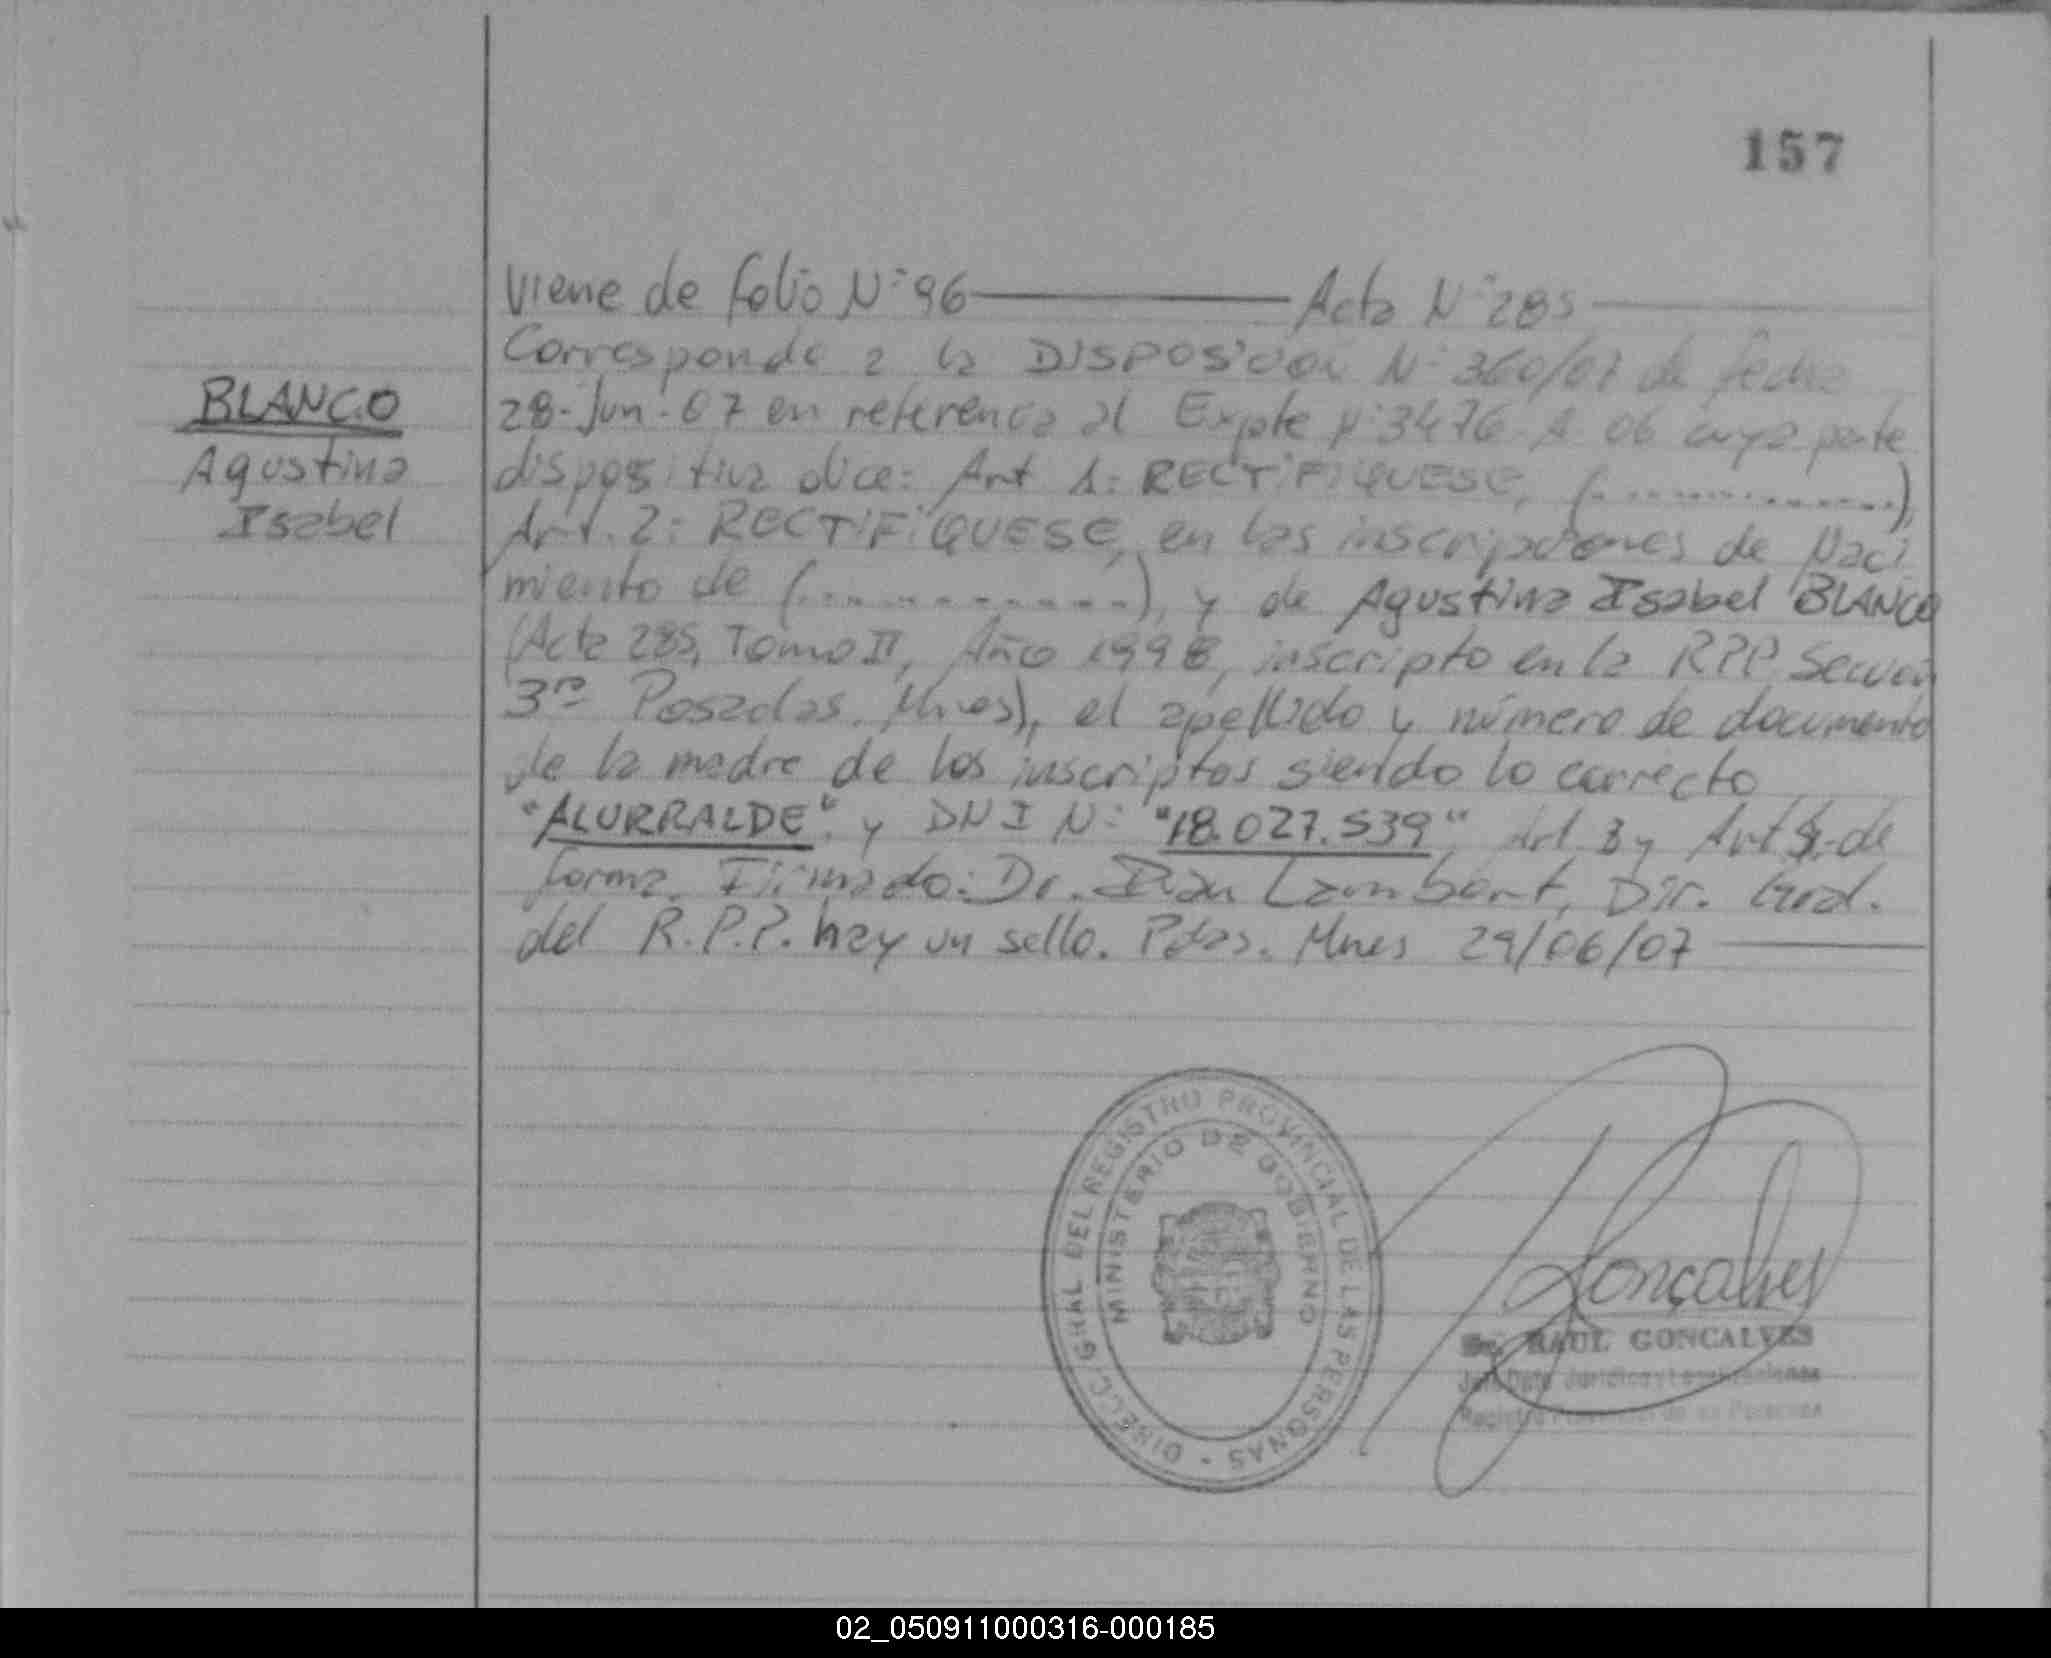 157
Viene de folio N° 96 Acta N° 285
Corresponde a la DISPOSICION N° 360/07 de fecha
BLANCO
28-Jun-07 en referencia al Expte N° 3476 A 06 cuya parte
Agustina
dispositiva dice: Art 1: RECTIFIQUESE, (............),
Isabel
Art. 2: RECTIFIQUESE, en las inscripciones de Naci
miento de (............), y de Agustina Isabel BLANCO
(Acta 285, Tomo II, Año 1998, inscripto en la RPP Sección
3ra Posadas. Mnes), el apellido y número de documento
de la madre de los inscriptos siendo lo correcto
"ALURRALDE" y DNI N: "18.027.539" Art. 3 y Art 4: de
forma. Firmado: Dr. Iván Lambert, Dir. Gral.
del R.P.P. hay un sello. Pdas. Mnes 29/06/07
DIRECC. GRAL DEL REGISTRO PROVINCIAL DE LAS PERSONAS -
MINISTERIO DE GOBIERNO
Goncalves
Dr. RAUL GONCALVES
Registro Provincial de las Personas
02_050911000316-000185